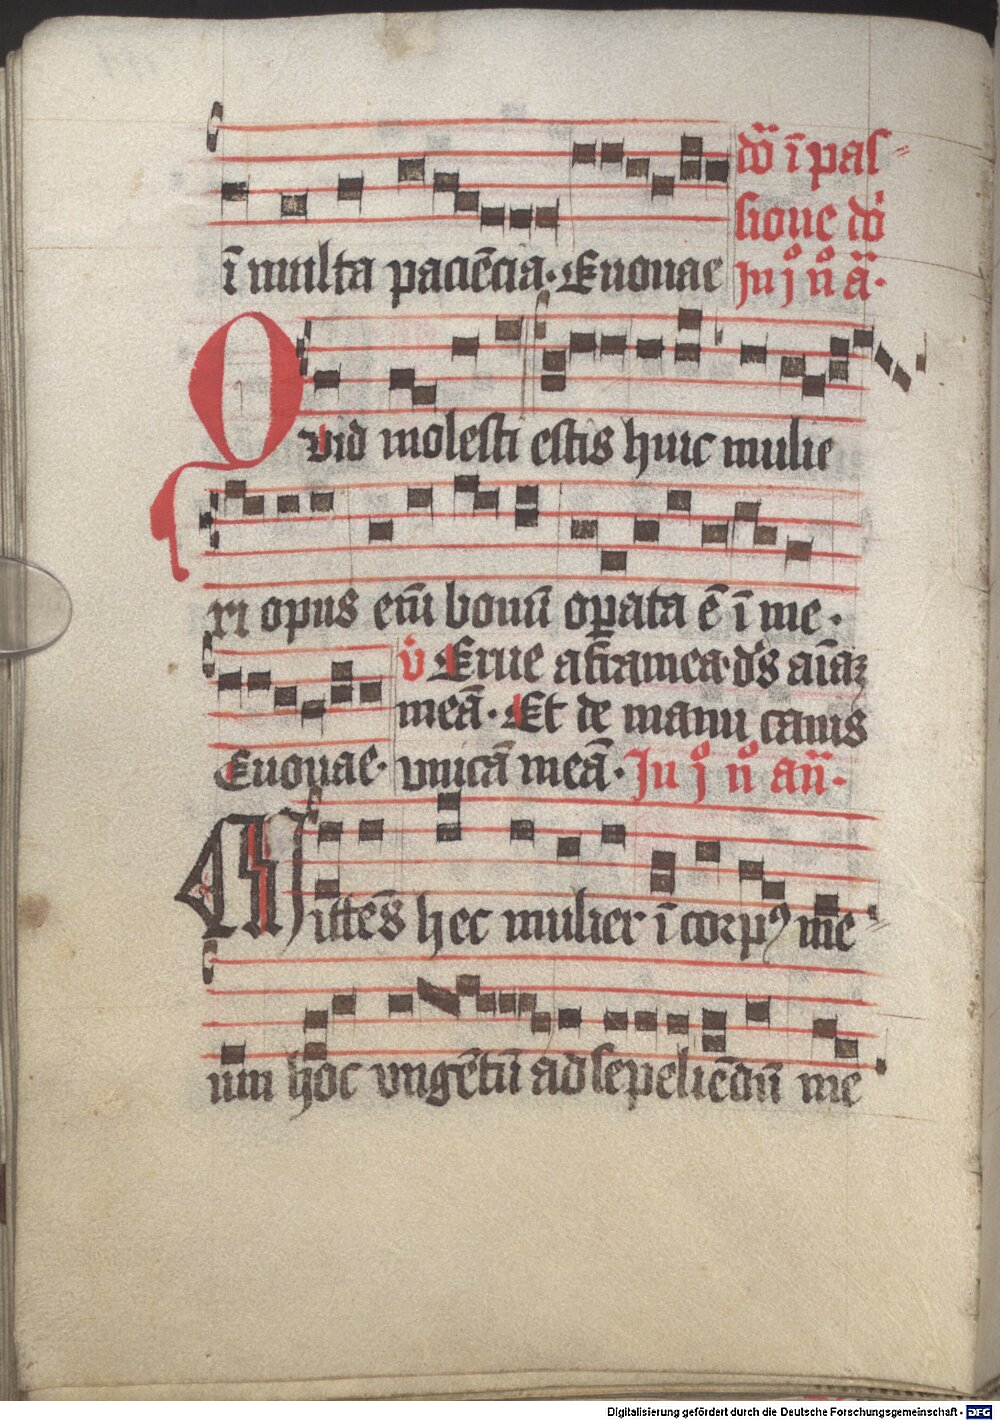 ī multa paciēcia. Euouae
dō ī pas
sione dō
In j n̊ ā.
Quid molesti estis huic mulie
ri opus eni bonū opata ē ī me.
v̇ Erue a framea dˢ aīaꝫ
meā. Et de manu canis
Euouae. vnicā meā. In j̊ n̊ añ.
Mittēs hec mulier ī corpꝰ me
um hoc vngētū ad sepeliēdū me
Digitalisierung gefördert durch die Deutsche Forschungsgemeinschaft - DFG